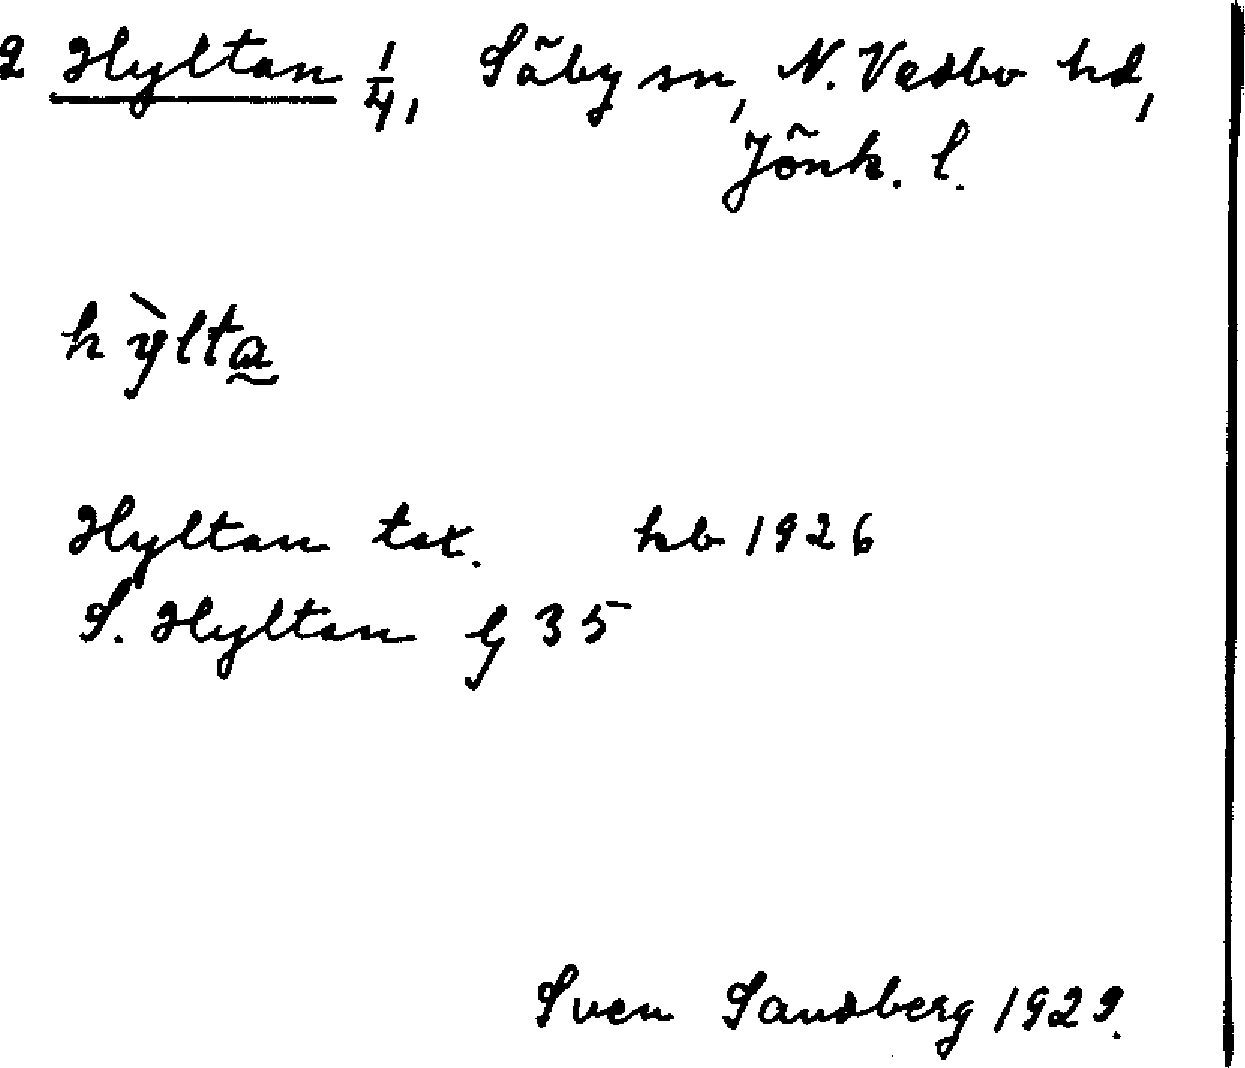 2 Hyltan 1/4, Säby sn, N. Vedbo hd,
Jönk. l.
hỳlta̰
Hyltan tax. hb 1926
S. Hyltan G 35
Sven Sandberg 1929.